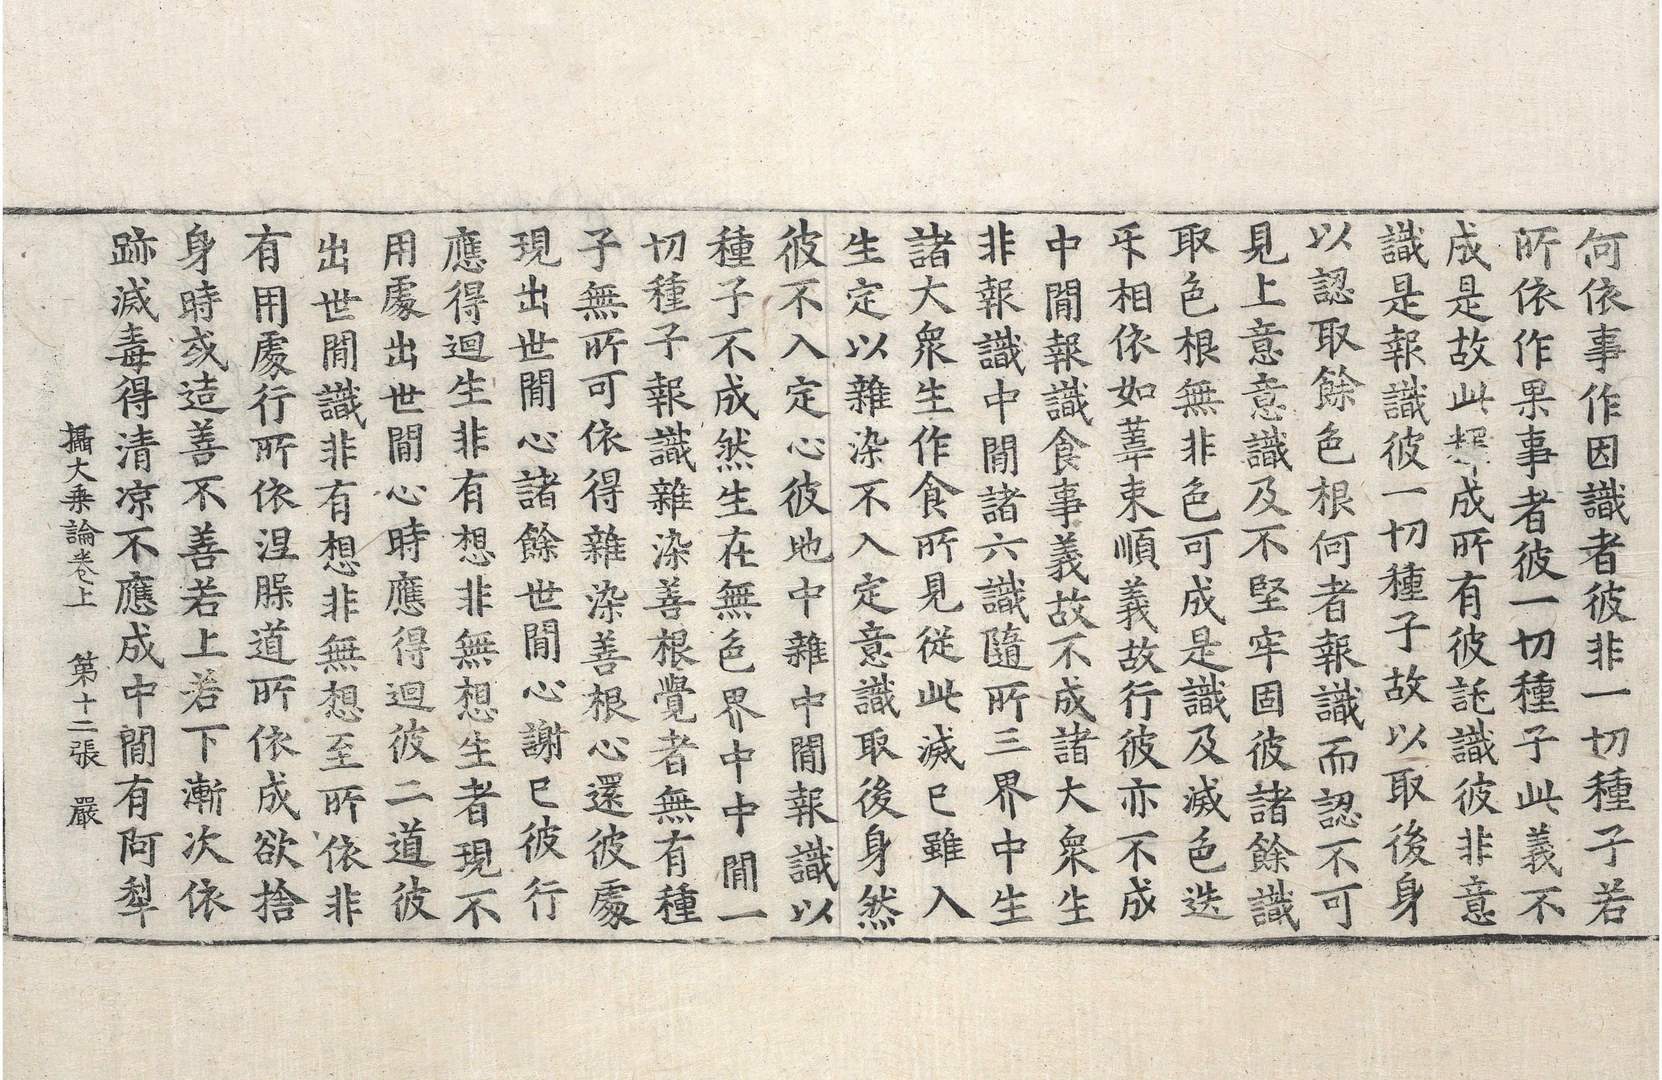 何依事作因識者彼非一切種子若
所依作果事者彼一切種子此義不
成是故此擇成所有彼託識彼非意
識是報識彼一切種子故以取後身
以認取餘色根何者報識而認不可
見上意意識及不堅牢固彼諸餘識
取色根無非色可成是識及滅色迭
㸦相依如葦束順義故行彼亦不成
中閒報識食事義故不成諸大衆生
非報識中閒諸六識隨所三界中生
諸大衆生作食所見從此滅已雖入
生定以雜染不入定意識取後身然
彼不入定心彼地中雜中閒報識以
種子不成然生在無色界中中閒一
切種子報識雜染善根覺者無有種
子無所可依得雜染善根心還彼處
現出世閒心諸餘世閒心謝已彼行
應得迴生非有想非無想生者現不
用處出世閒心時應得迴彼二道彼
出世閒識非有想非無想至所依非
有用處行所依涅槃道所依成欲捨
身時或造善不善若上若下漸次依
跡滅毒得清涼不應成中閒有阿犁
攝大乘論卷上　第十二張　嚴